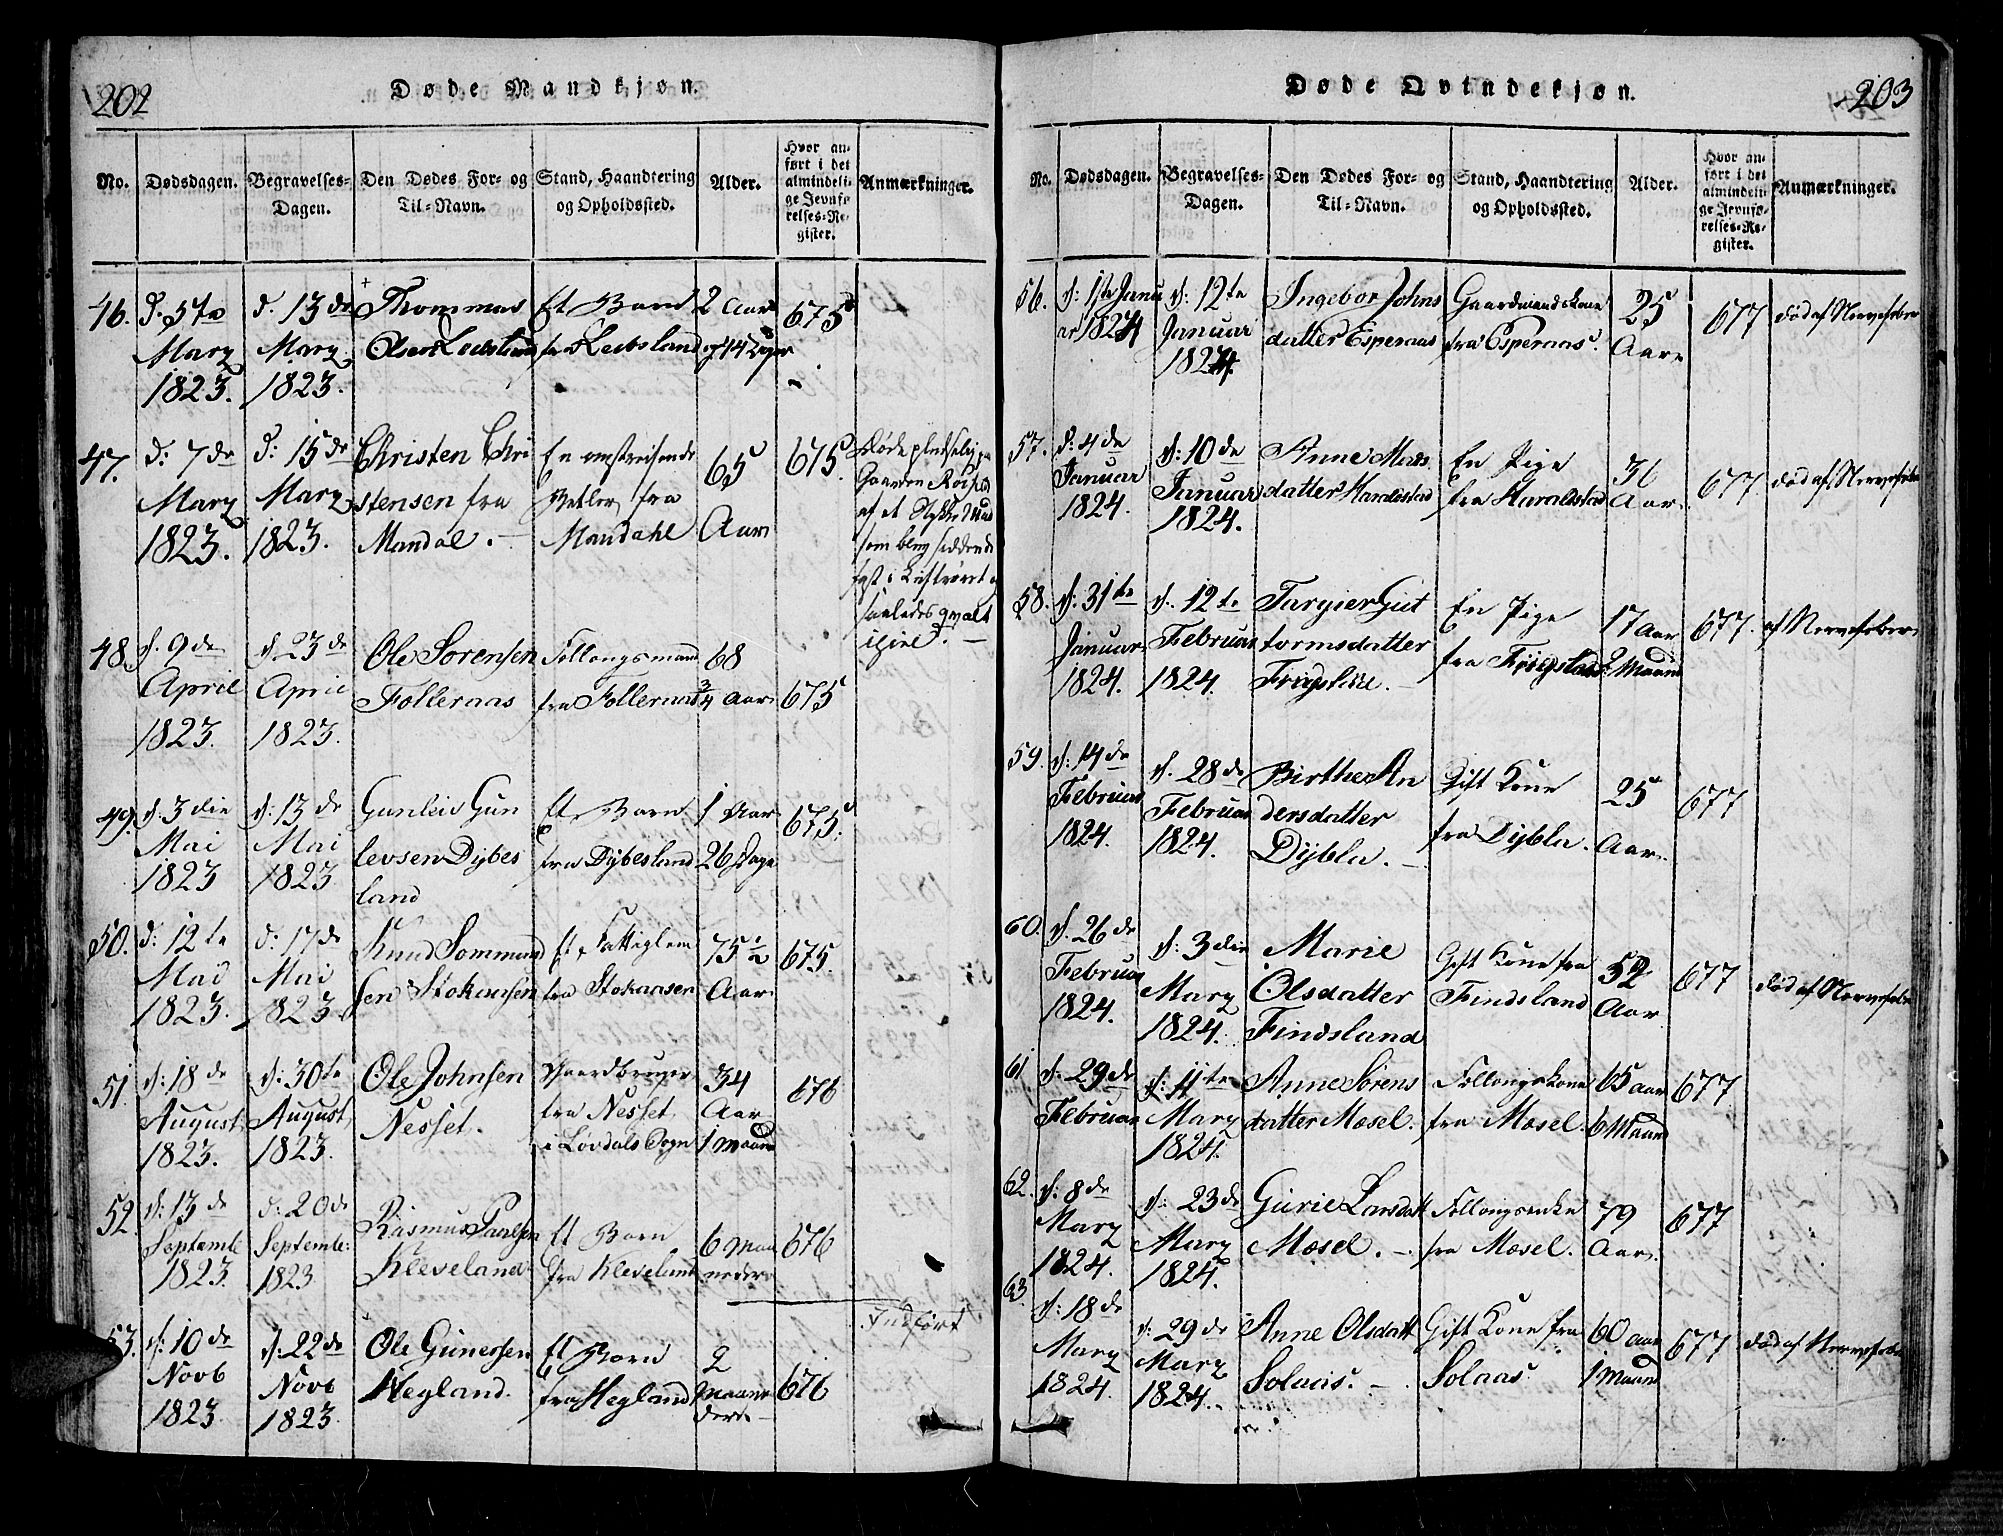 202
Døde Mandkjøn.
No.
Dødsdagen.
Begravelses-
Dagen.
Den Dødes For- og
Til-Navn.
Stand, Haandtering
og Opholdssted.
Alder.
Hvor an-
ført i det
almindeli-
ge Jevnfø-
relses-Re-
gister.
Anmærkninger.
46.
d. 5te
Marz
1823.
d. 13de
Marz
1823.
Thommas
Olsen
Et Barn
fra
2 Aar
og 14 Dage
675
47.
d: 7de
Marz
1823.
d: 15de
Marz
1823.
Christen Chri
stensen fra
Mandal.
En omstreifende
Betler fra
Mandahl
65
Aar
675.
Døde pludselig paa
Gaarden
af et Stykke
som blev siddende
fast i Luftrøret og
saaledes qvalt
ham.
48.
d. 9de
April
1823.
d. 23de
April
1823.
Ole Sørensen
Folleraas
Follougsmand
fra Follernas
68
3/4 Aar
675
49.
d. 3die
Mai
1823
d: 13de
Mai
1823
Gunleiv Gun
levsen Dybes
land
Et Barn
fra Dybesland
1 Aar
26 Dage
675.
50.
d: 12te
Mai
1823.
d: 17de
Mai
1823
Knud Sommund
sen Stokaasen
Et Fattiglem
fra Stokaasen
75 1/2
Aar
675.
51.
d: 18de
August
1823.
d: 30te
August
1823.
Ole Johnsen
Nesset.
Gaardbruger
fra Nesset
i Løvdals Sogn
34
Aar
1 Maaned
676
52.
d: 13de
Septembr
1823.
d: 20de
Septembr:
1823
Rasmus Paalsen
Kleveland
Et Barn
fra Kleveland
6 Maa
neder
676
53.
d: 10de
Novb
1823.
d: 22de
Novb
1823.
Ole Gunessen
Hegland.
Et Barn
fra Hegland
2
Maane
der
676
Indført
203
Døde Qvindekjøn.
No.
Dødsdagen.
Begravelses-
Dagen.
Den Dødes For- og
Til-Navn.
Stand, Haandtering
og Opholdssted.
Alder.
Hvor an-
ført i det
almindeli-
ge Jevnfø-
relses-Re-
gister.
Anmærkninger.
56.
d: 1ste Janu
ar 1824
d: 12te
Januar
1824.
Ingebor Johns
datter Esperaas
Gaardmandskone
fra Esperaas.
25
Aar
677
død af Nervefeber
57.
d: 4de
Januar
1824.
d: 10de
Januar
1824.
Anne Mads
datter Haraldstad
En Pige
fra Haraldstad
36
Aar
677.
død af Nervefeber
58.
d: 31te
Januar
1824.
d. 12te
Februar
1824.
Targier Gut
tormsdatter
En Pige
fra
17 Aar
2 Maaned
677.
af Nervefeber
59.
d: 14de
Februar
1824.
d. 28de
Februar
1824.
Birthe An
dersdatter
Dijbla.
Gift Kone
fra Dijbla.
25
Aar
677
60.
d. 26de
Februar
1824.
d: 3die
Marz
1824.
Marie
Olsdatter
Findsland
Gift Kone fra
Findsland
52
Aar
677
død af Nervefeber
61
d. 29de
Februar
d: 11te
Marz
1824.
Anne Sørens
datter Mosel.
Follougskone
fra Mosel.
65 Aar
6 Maaned
677
62.
d. 8de
Marz
1824.
d: 23de
Marz
1824.
Gurie Larsdatt
Mosel.
Follougsenke
fra Mosel.
79
Aar.
677
63.
d: 18de
Marz
1824.
d: 29de
Marz
1824.
Anne Olsdatt
Solaas.
Gift Kone fra
Solaas
60 Aar
1 Maaned
677
død af Nervefeber